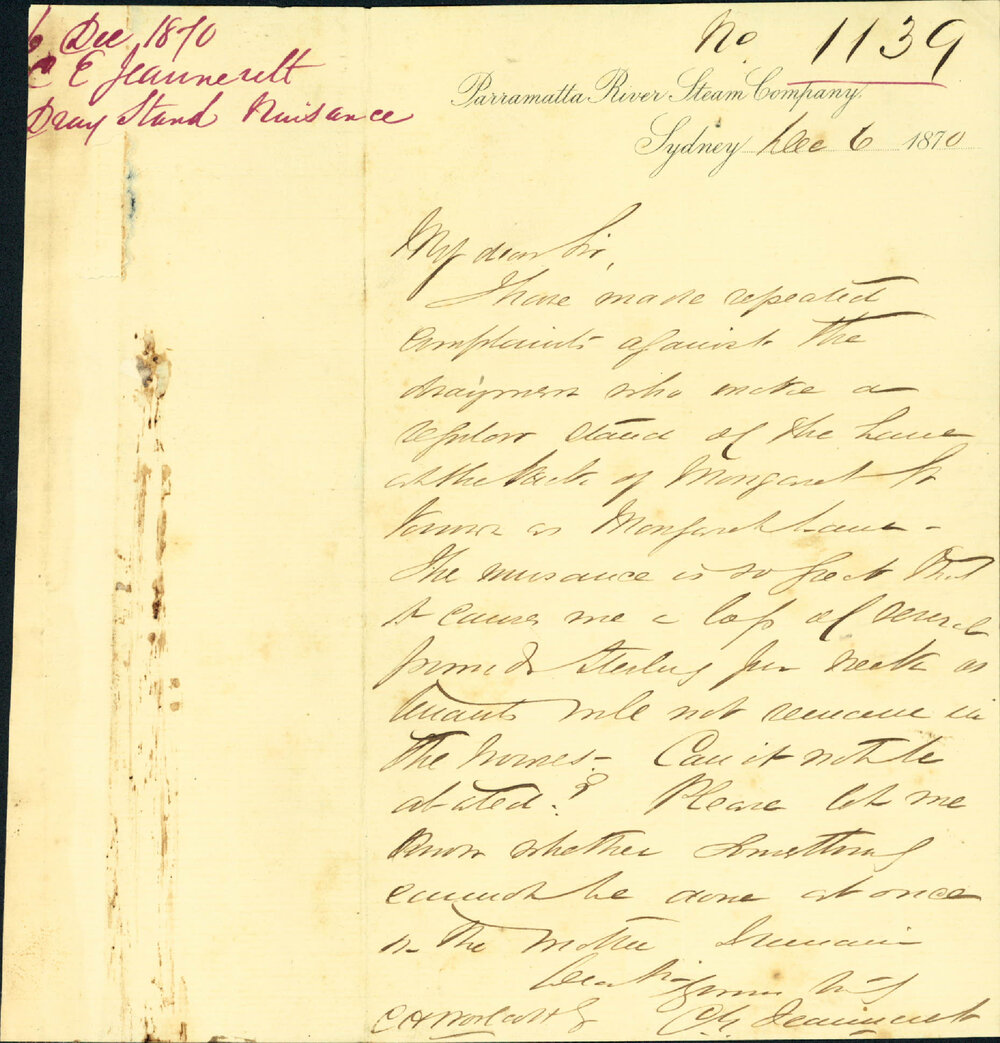 6 Dec 1870
C E Jeannerett
Dray Stand Nuisance
No 1139
Parramatta River Steam Company.
Sydney Dec 6 1870
My dear Sir,
I have made repeated
complaints against the
draymen who make a
regular stand of the Lane
at the back of Margaret St
known as Margaret Lane -
The nuisance is so great that
it causes me a loss of several
pounds sterling per week as
tenants will not remain in
the houses - Can it not be
abated? Please let me
know whether something
cannot be done at once
in the matter I remain
Dear Sir
yours truly
C H Woolcott Esq C E Jeanneret